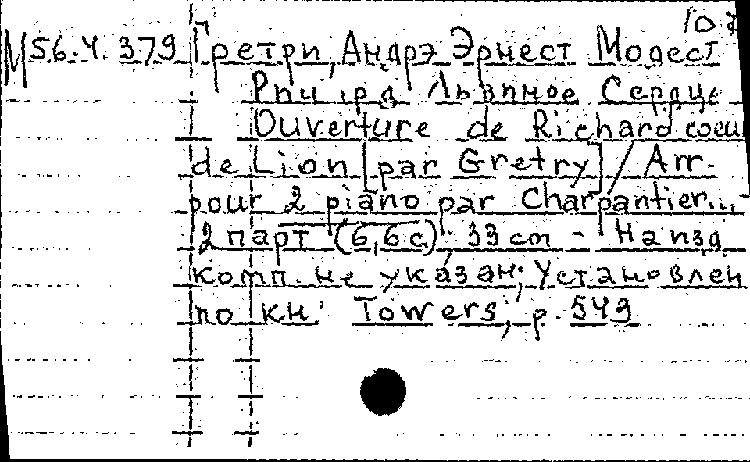 М56.4.379 Гретри, Андрэ Эрнест Модест
Ричард Львиное Сердце
Ouverture de Richard coeur
de Lion [par Gretry] / Arr.
pour 2 piano par Charpantier...
2 парт (6,6 с); 33 cm - На изд.
комп. не указан; Установлен
по кн: Towers, p. 549